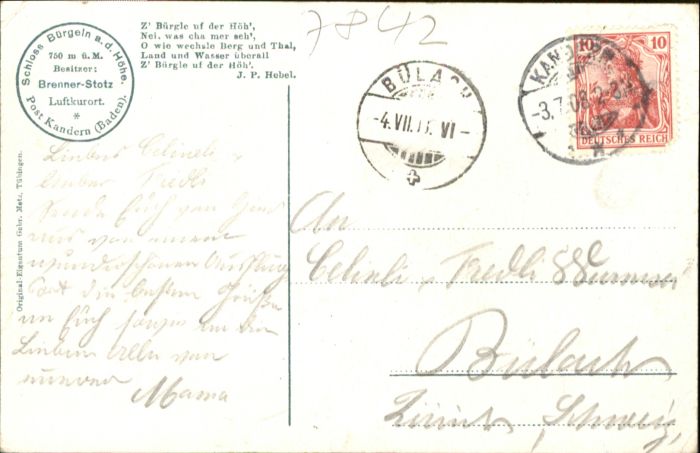 7842
Schloss Bürgeln a.d. Höhe.
750 m ü. M.
Besitzer:
Brenner-Stotz
Luftkurort.
*
Post Kandern (Baden).
Z' Bürgle uf der Höh',
Nei, was cha mer seh',
O wie wechsle Berg und Thal,
Land und Wasser überall
Z' Bürgle uf der Höh'.
J. P. Hebel.
BÜLACH
-4.VII. VI-
KANDERN
-3.7.08.2-3
10 10
DEUTSCHES REICH
Original-Eigentum Gebr. Metz, Tübingen.
Liebes Celineli,
lieber Fredli
Sende Euch von
aus von einem
wunderschönen Ausflug
die besten Grüße
an Euch sowie an die
Lieben Alle von
eurer
Mama
An
Celineli, Fredli
Bülach,
Zürich, Schweiz,